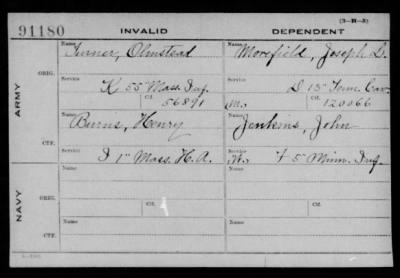 (3-H-3)
91180 INVALID DEPENDENT
ARMY
ORIG.
Name Turner, Olmstead
Name Morefield, Joseph D.
Service K 55" Mass. Inf.
Service D 13" Tenn. Cav.
Ctf. 56891
M. Ctf. 120066
CTF.
Name Burns, Henry
Name Jenkins, John
Service I 1" Mass. H. A.
Service W. F 5" Minn. Inf.
NAVY
ORIG.
Name
Name
Service
Ctf.
Service
Ctf.
CTF.
Name
Name
Service
Service